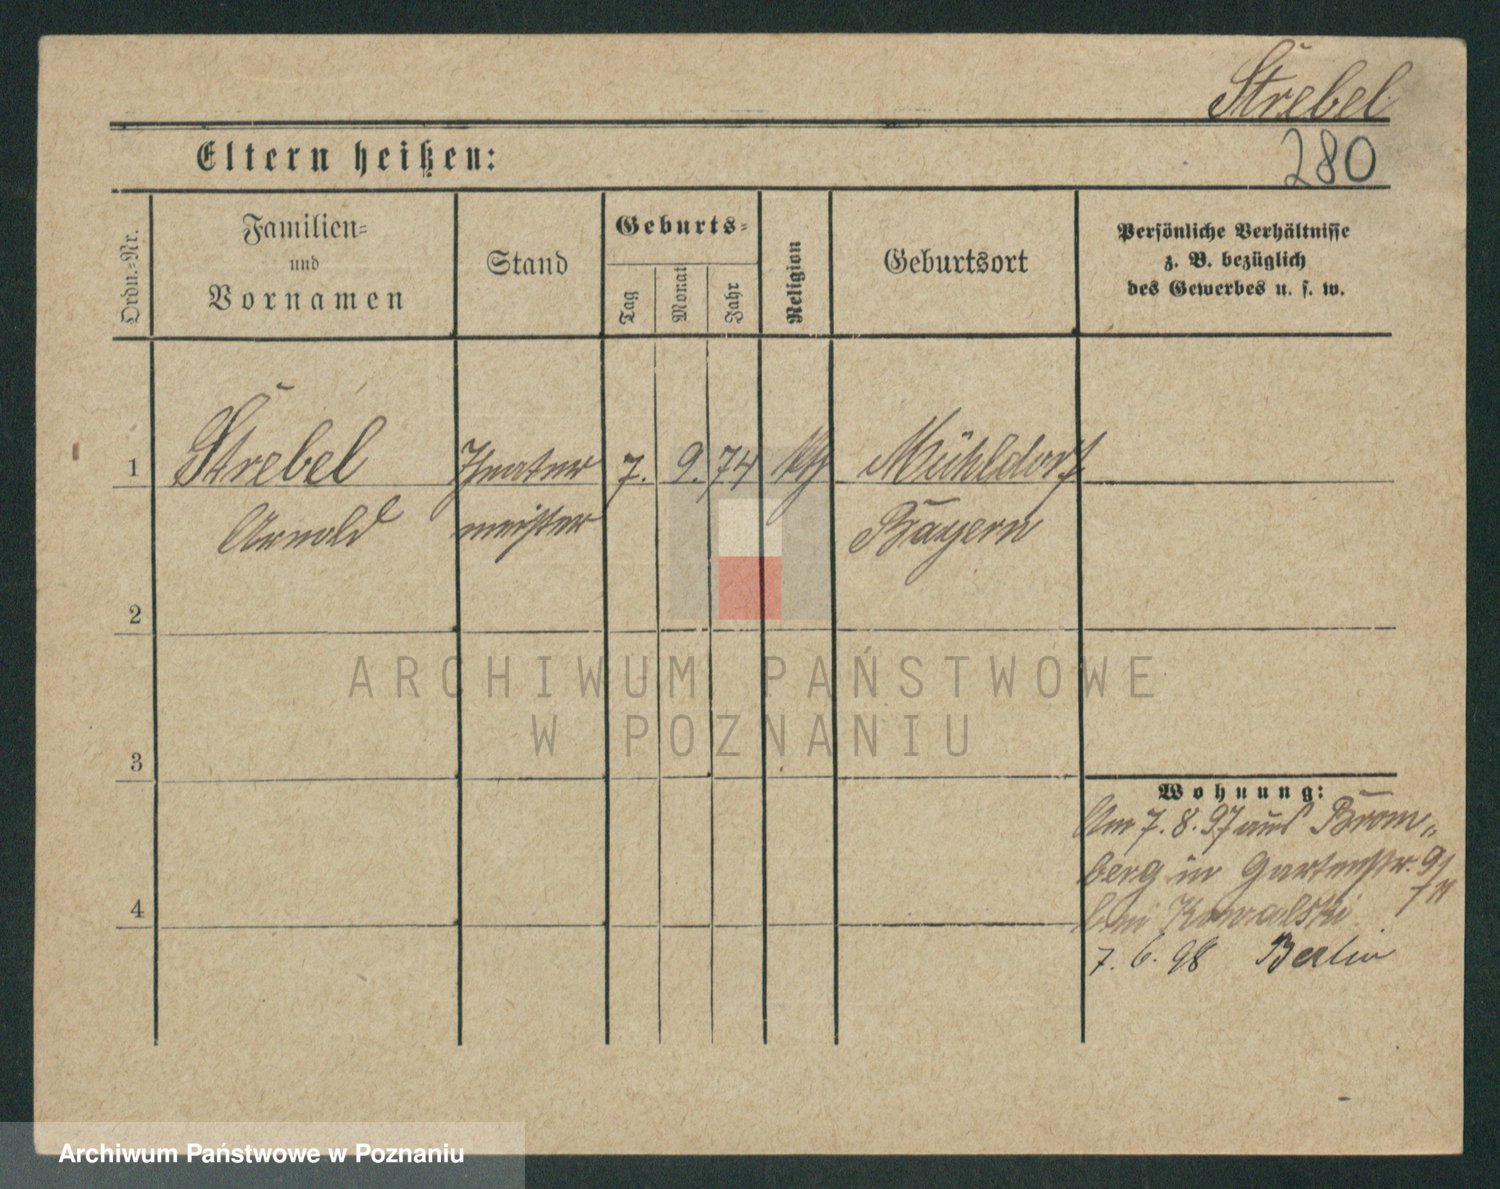 Strebel
Eltern heißen:
280
Ordn.-Nr.
Familien-
und
Vornamen
Stand
Geburts-
Tag
Monat
Jahr
Religion
Geburtsort
Persönliche Verhältnisse
z. B. bezüglich
des Gewerbes u. s. w.
1 Strebel Theater 7. 9. 74 kth Mühldorf
Arnold meister Bayern
2
ARCHIWUM PAŃSTWOWE
W POZNANIU
3
Wohnung:
Am 7.8.97 aus Brom„
berg in Gartenstr. 9/
bei Kowalski
4
7. 6. 98 Berlin
Archiwum Państwowe w Poznaniu